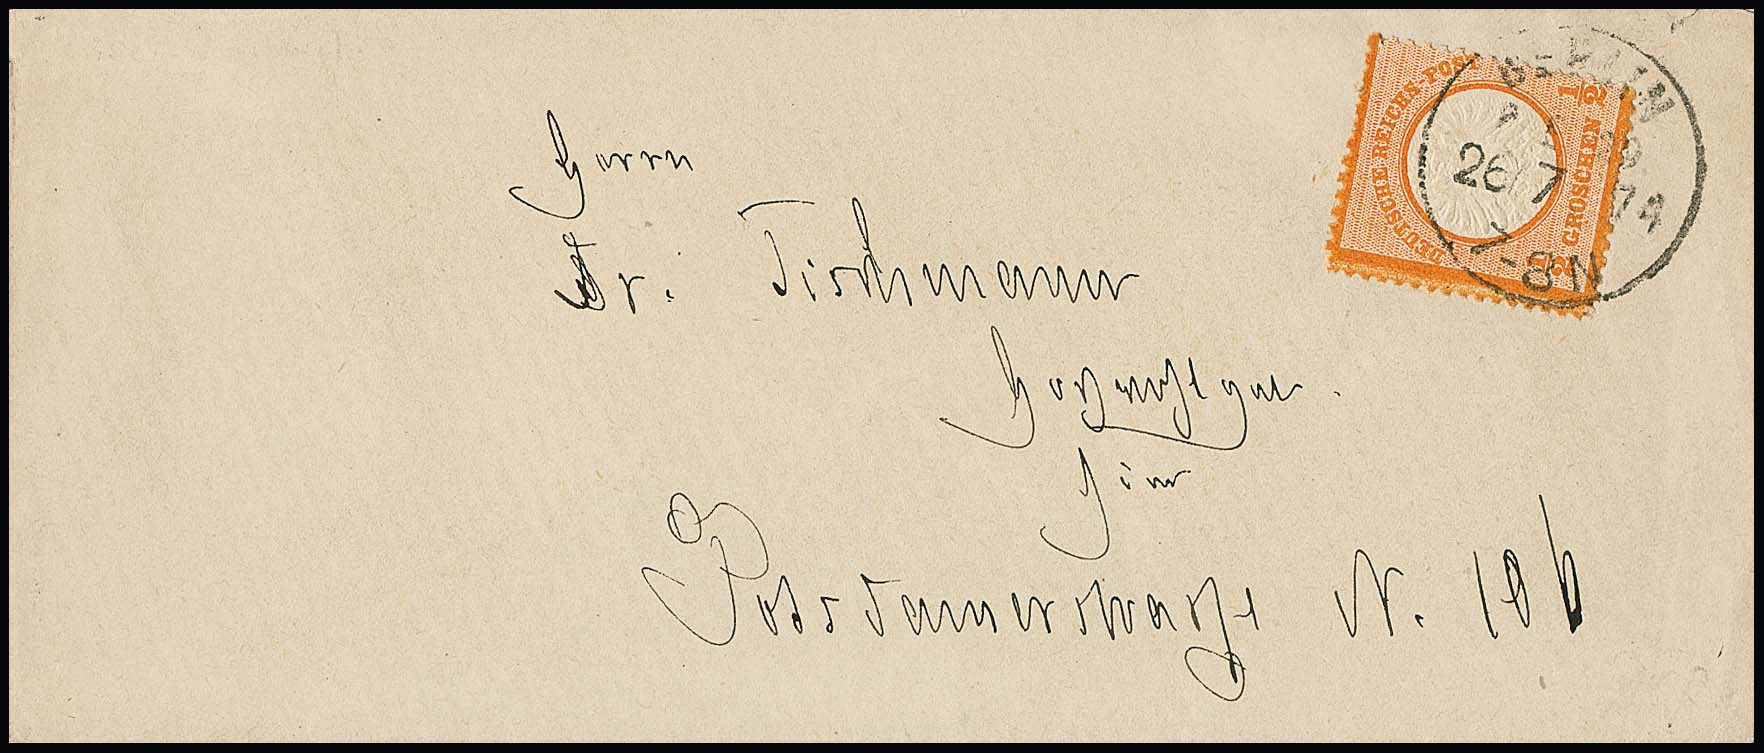 DEUTSCHE REICHS-POST
1/2 GROSCHEN 1/2
BERLIN
26/7 74
7-8N
Herrn
Dr. Tischmann
Hochwohlgeb.
hier
Potsdamerstraße N. 10b